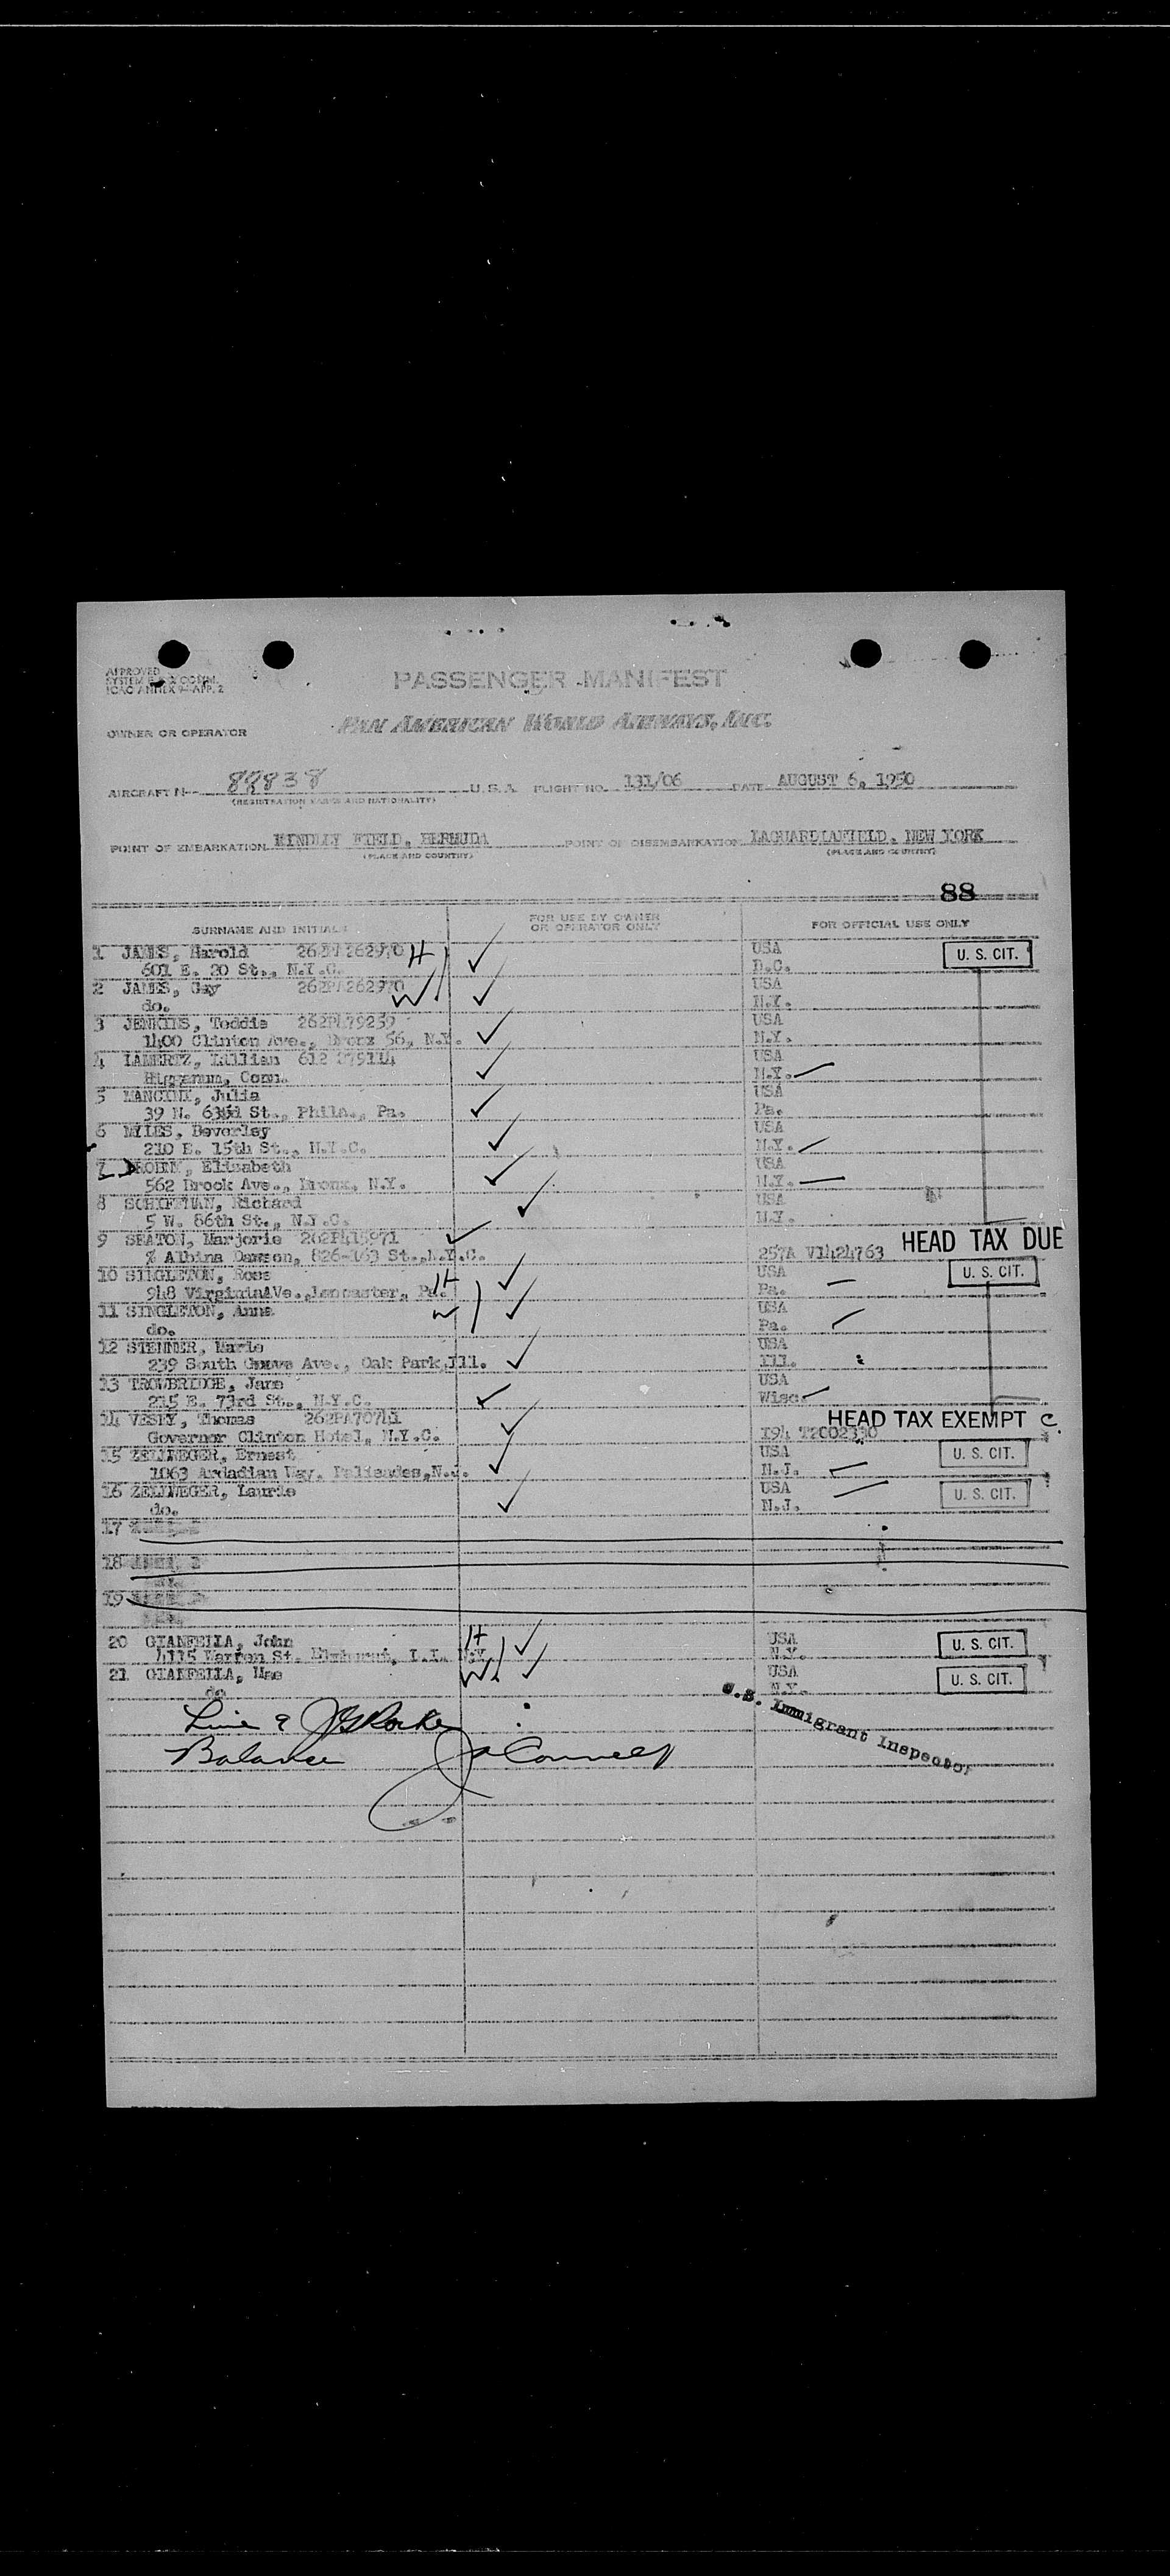 APPROVED
ICAO ANNEX 9-APP. 2
PASSENGER MANIFEST
PAN AMERICAN WORLD AIRWAYS, INC.
OWNER OR OPERATOR
AIRCRAFT N— U.S.A. FLIGHT NO. 131/06 DATE AUGUST 6, 1950
(REGISTRATION MARKS AND NATIONALITY)
POINT OF EMBARKATION KINDLEY FIELD, BERMUDA POINT OF DISEMBARKATION LAGUARDIAFIELD, NEW YORK
(PLACE AND COUNTRY) (PLACE AND COUNTRY)
88
SURNAME AND INITIALS FOR USE BY OWNER OR OPERATOR ONLY FOR OFFICIAL USE ONLY
1 JAMES, Harold H USA U. S. CIT.
601 E. 20 St., N.Y.C. D.C.
2 JAMES, Gay 262PA262970 W USA
do. N.Y.
3 JENKINS, Teddie 262PA79259 USA
1400 Clinton Ave., Bronx 56, N.Y. N.Y.
4 LAMERTZ, Lillian 612 USA
Higganum, Conn. N.Y.
5 MANCINI, Julia USA
39 N. St., Phila., Pa. Pa.
6 MYLES, Beverley USA
210 E. 15th St., N.Y.C. N.Y.
7 Elizabeth USA
562 Brook Ave., Bronx, N.Y. N.Y.
8 SCHIFFMAN, Richard USA
5 W. 86th St., N.Y.C. N.Y.
9 SEATON, Marjorie
% Albina Dawson, 826-163 St., N.Y.C. 257A V1424763 HEAD TAX DUE
10 SINGLETON, Ross H USA U. S. CIT.
948 VirginiaAve., Lancaster, Pa. Pa.
11 SINGLETON, Anne W USA
do. Pa.
12 STENNER, Marie USA
239 South Grove Ave., Oak Park,Ill. Ill.
13 TROWBRIDGE, Jane USA
215 E. 73rd St., N.Y.C. Wisc.
14 VESEY, Thomas 262PA70741 HEAD TAX EXEMPT C
Governor Clinton Hotel, N.Y.C. I94 T2C02330
15 ZELLWEGER, Ernest USA U. S. CIT.
1063 Way, Palisades,N.J. N.J.
16 ZELLWEGER, Laurie USA U. S. CIT.
do. N.J.
17
18
19
20 GIANFELLA, John H USA U. S. CIT.
4115 Warren St. Elmhurst, L.I. N.Y. N.Y.
21 GIANFELLA, Mae W USA U. S. CIT.
do N.Y.
Line 9
Balance
U.S. Immigrant Inspector